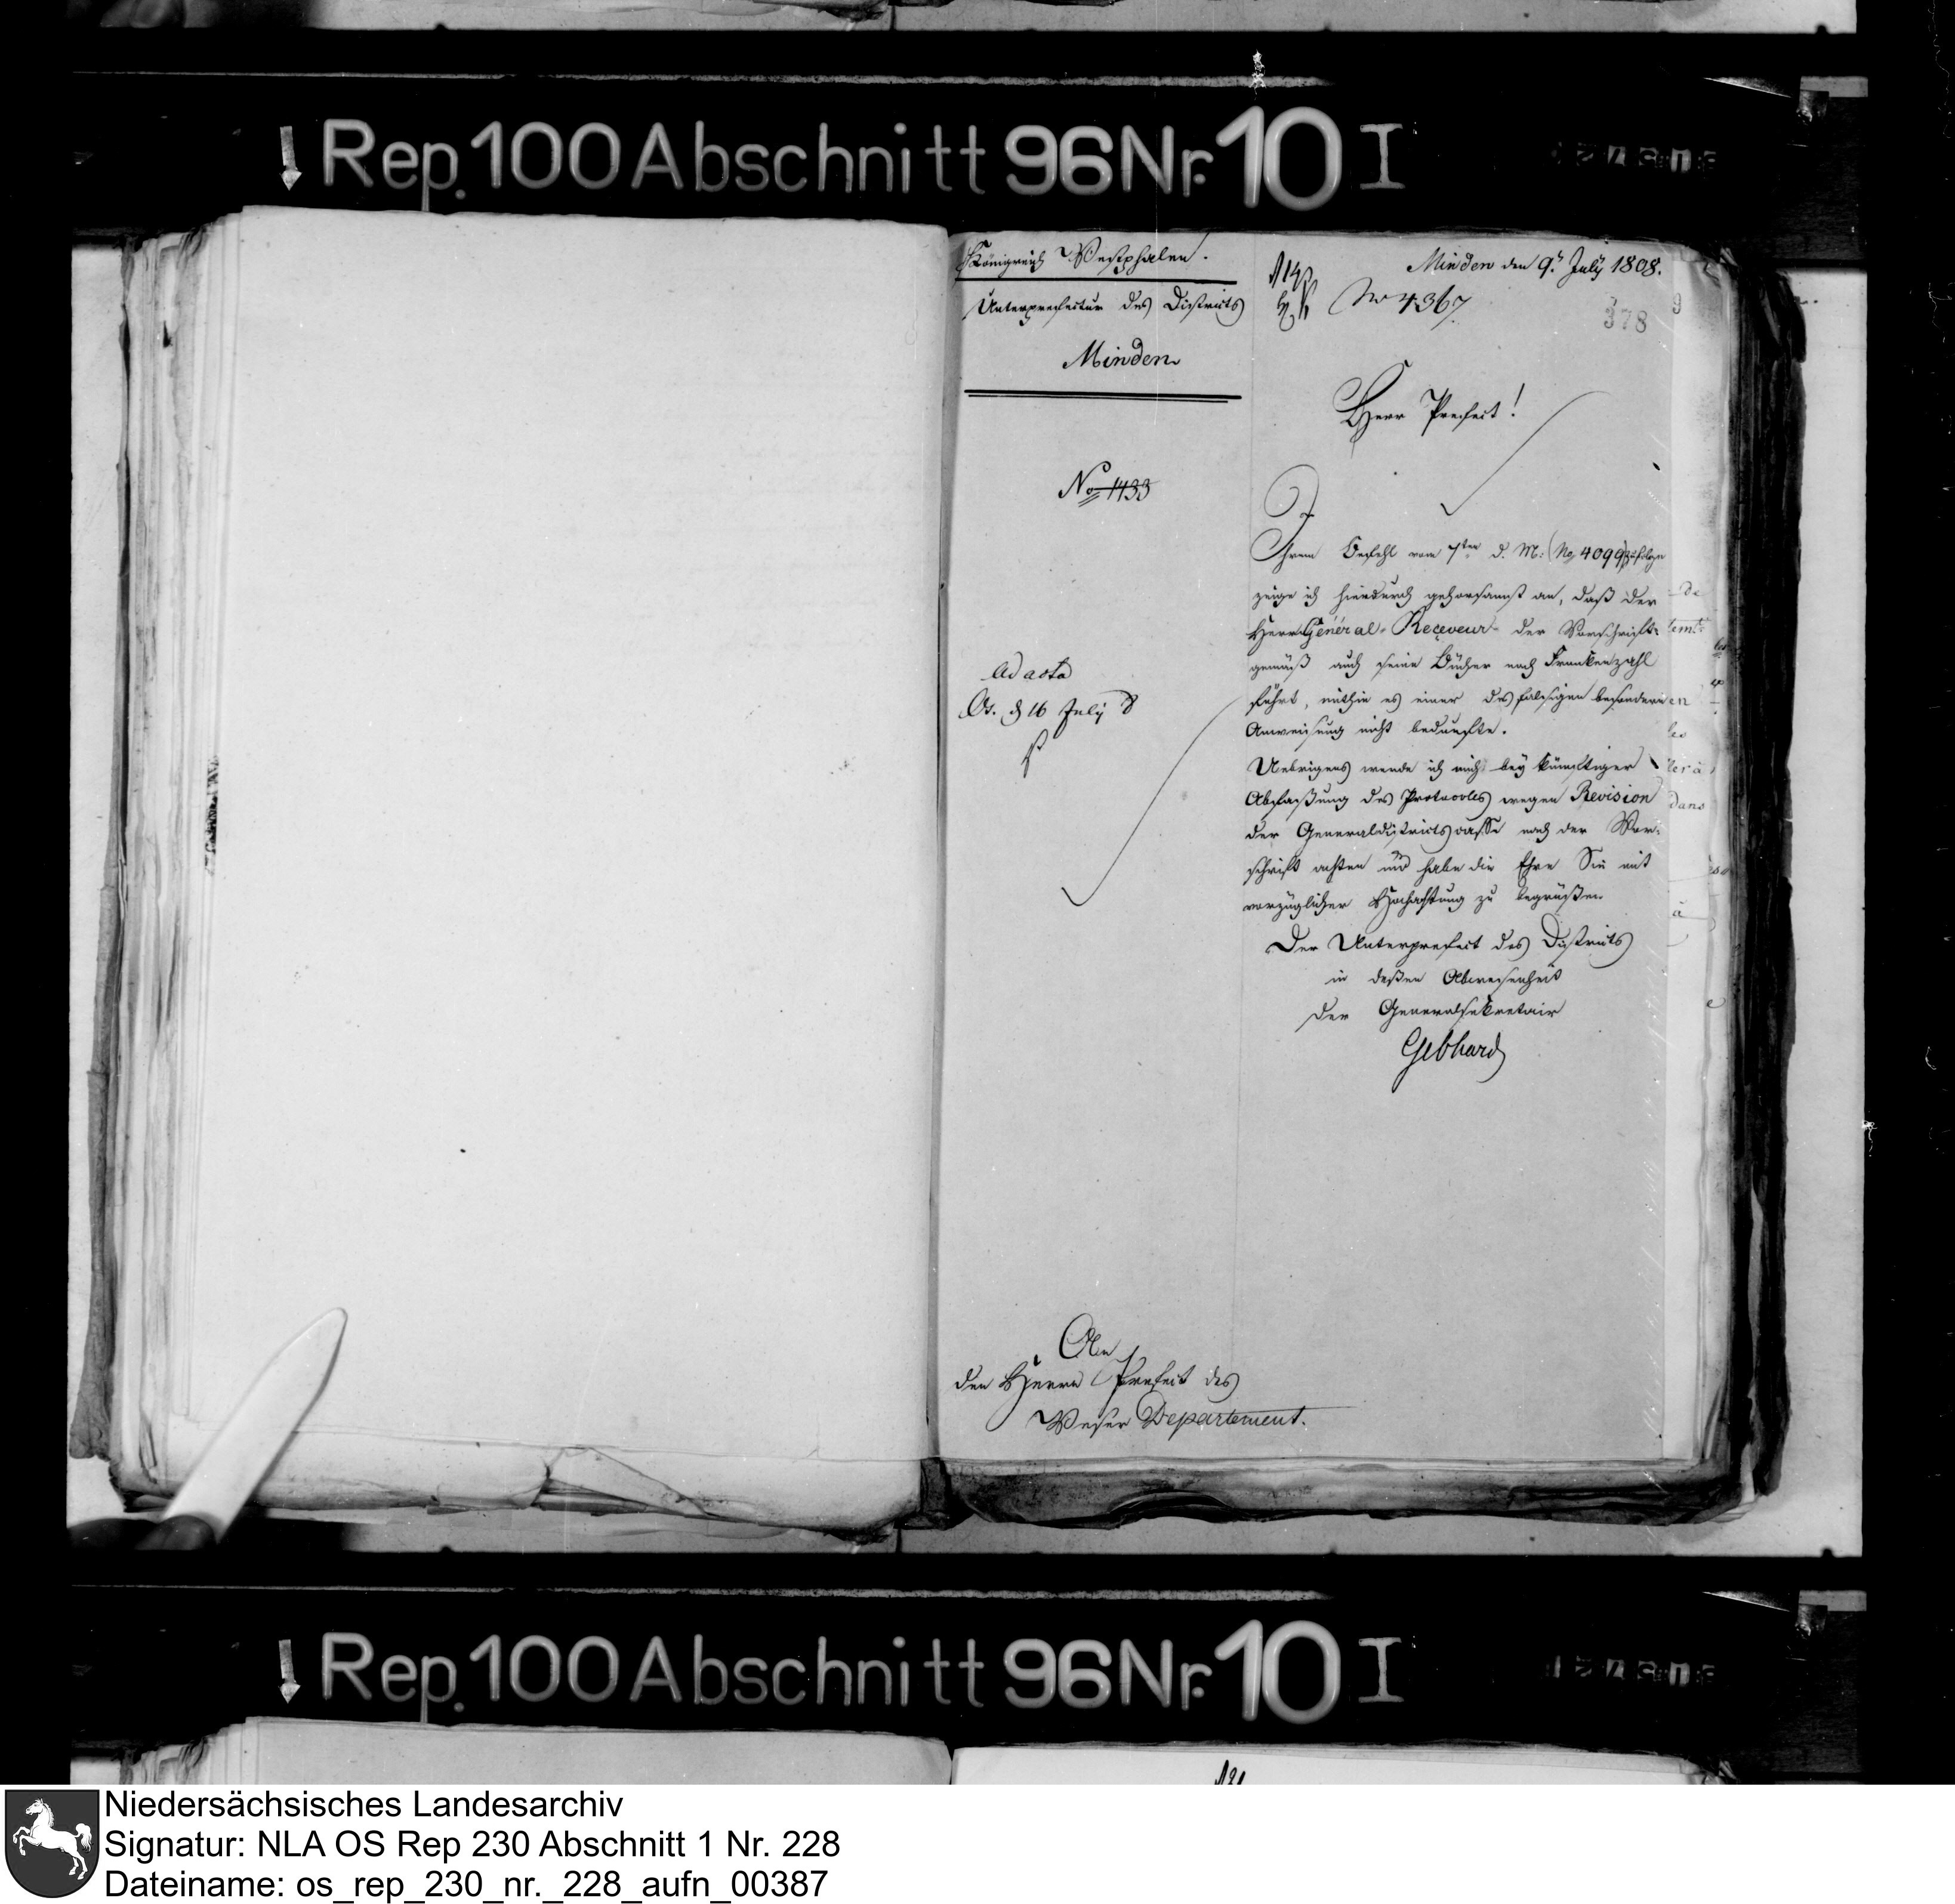 Rep. 100 Abschnitt 96 Nr. 10 I
Königreich Westphalen.
Unterprefectur des Districts
Minden
Minden den 9t July 1808.
No 4367
378
Herr Prefect!
No 1433
Ihrem Befehl vom 7ten d. M: (No 4099) zufolge
zeige ich hierdurch gehorsamst an, daß der
Herr Général-Receveur der Vorschrift-
gemäß auch seine Bücher nach Frankenzahl
führt, mithin es einer desfalsigen besondern
Anweisung nicht bedurfte.
Uebrigens werde ich mich bey künftiger
Abfaßung des Protocolles wegen Revision
der Generaldistrictscasse nach der Vor-
schrift achten und habe die Ehre Sie mit
vorzüglicher Hochachtung zu begrüßen
Der Unterprefect des Districts
in deßen Abwesenheit
der Generalsekretair
Gebhard
ad acta
Os. d 16 July 8
An
den Herrn Prefect des
Weser Departement.
Rep. 100 Abschnitt 96 Nr. 10 I
Niedersächsisches Landesarchiv
Signatur: NLA OS Rep 230 Abschnitt 1 Nr. 228
Dateiname: os_rep_230_nr._228_aufn_00387